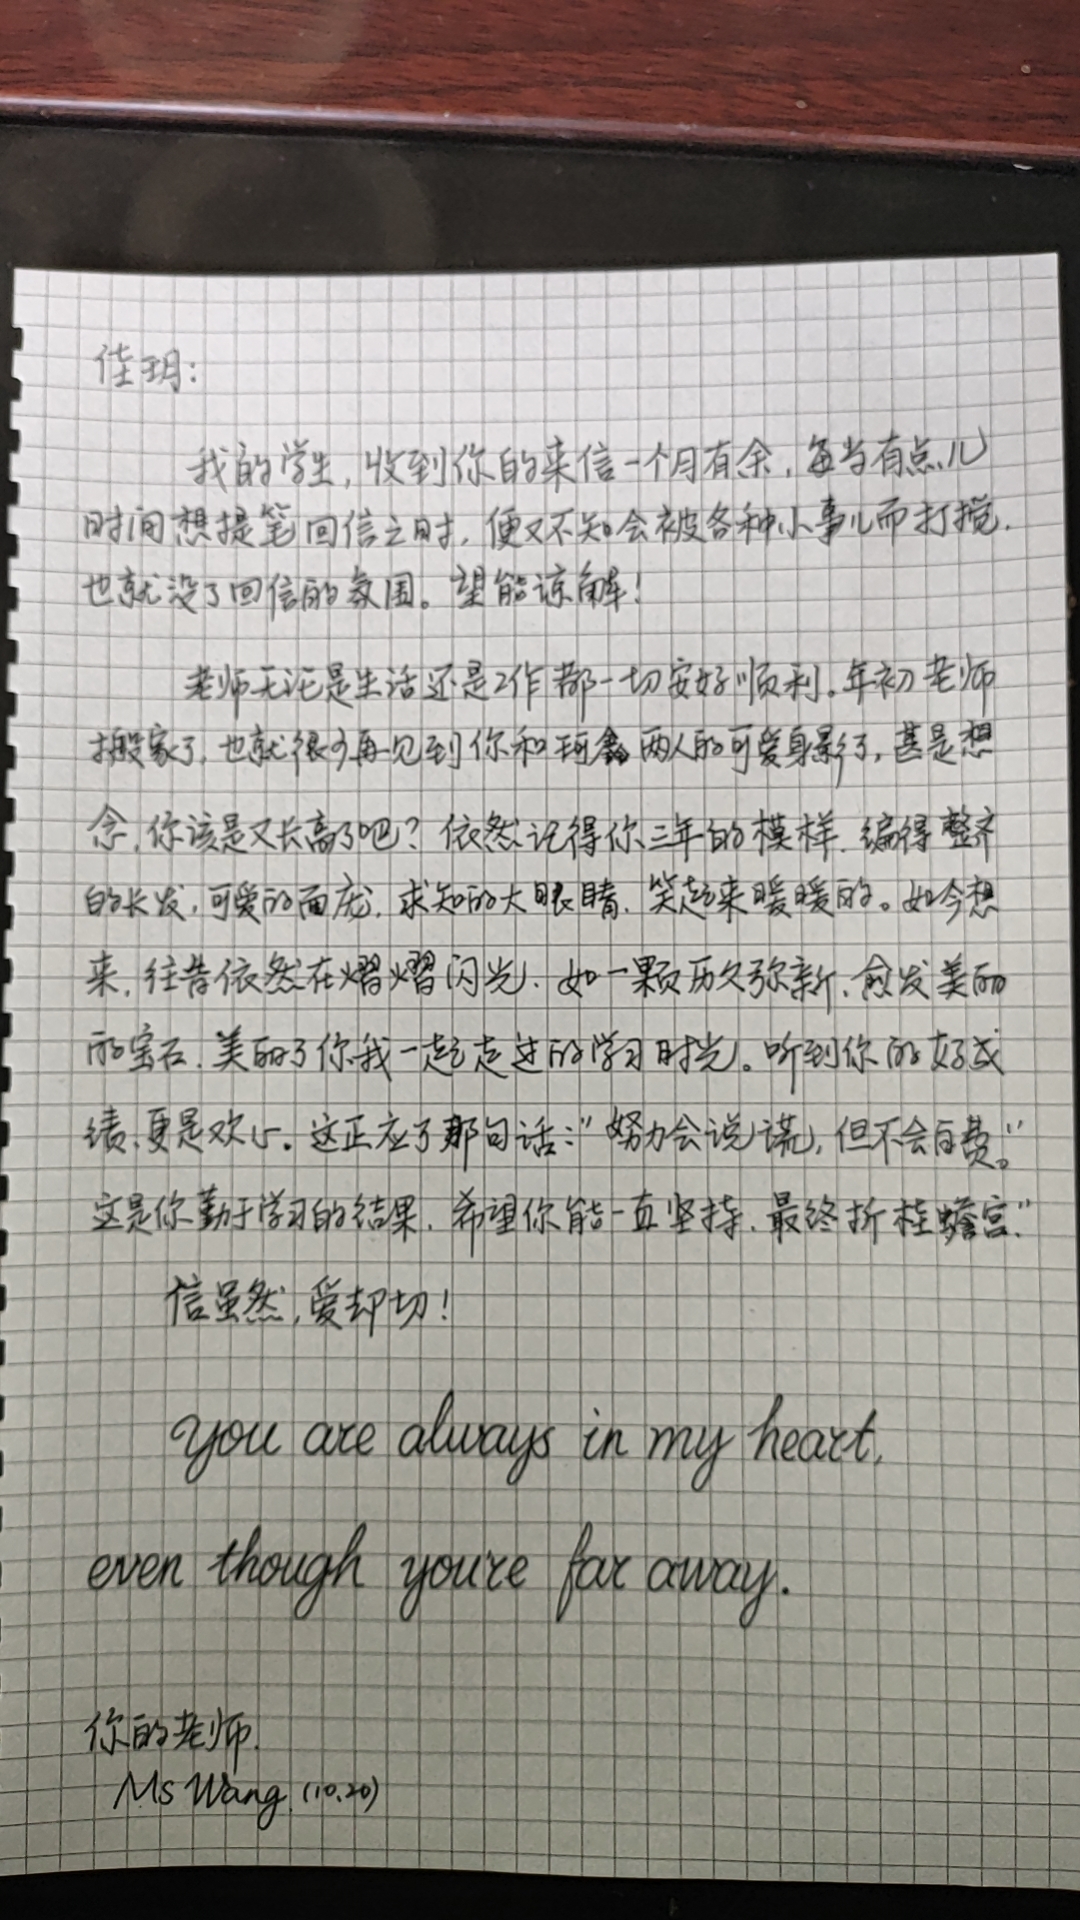 佳玥:
我的学生,收到你的来信一个月有余,每当有点儿
时间想提笔回信之时,便又不知会被各种小事儿而打搅.
也就没了回信的氛围。望能谅解!
老师无论是生活还是工作都一切安好顺利。年初老师
搬家了,也就很少再见到你和珂鑫两人的可爱身影了,甚是想
念,你该是又长高了吧?依然记得你三年的模样.编得整齐
的长发,可爱的面庞,求知的大眼睛、笑起来暖暖的。如今想
来,往昔依然在熠熠闪光、如一颗历久弥新、愈发美丽
的宝石、美丽了你我一起走过的学习时光。听到你的好成
绩,更是欢心。这正应了那句话:"努力会说谎,但不会白费。"
这是你勤于学习的结果,希望你能一直坚持、最终折桂蟾宫."
信虽然,爱却切!
you are always in my heart,
even though you're far away.
你的老师.
Ms Wang (10.20)